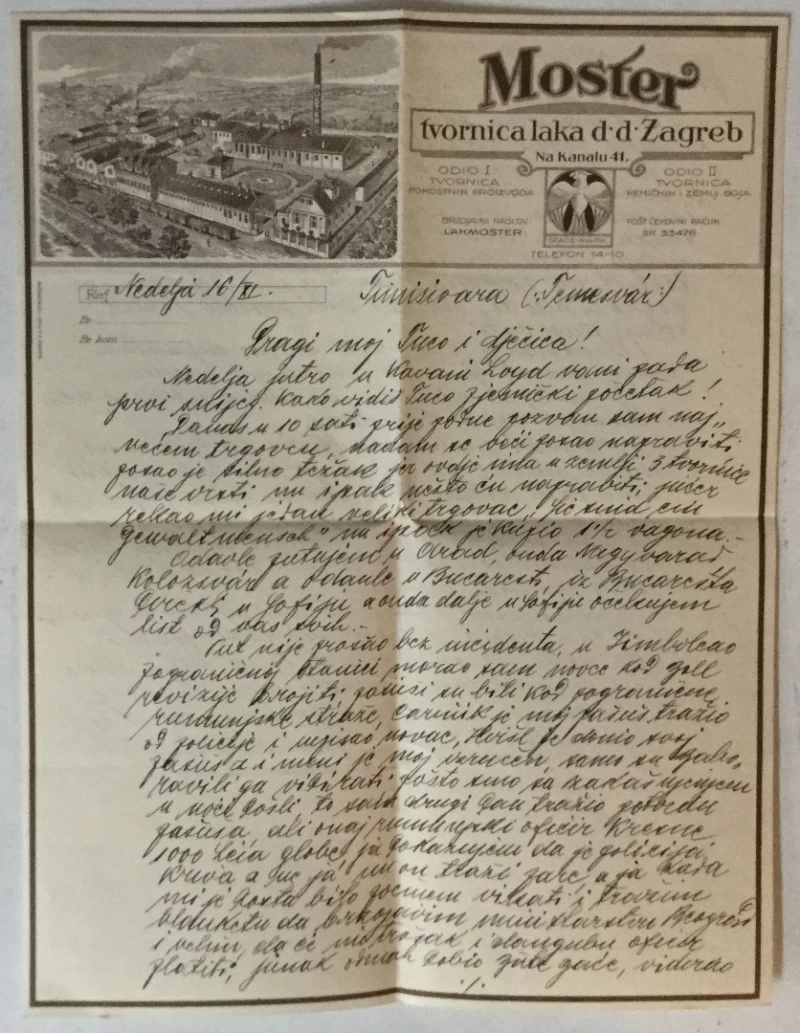 Moster
tvornica laka d·d·Zagreb
Na Kanalu 41.
ODIO I
TVORNICA
POKOSTNIH PROIZVODA
ODIO II
TVORNICA
KEMIČKIH I ZEMLJ. BOJA
BRZOJAVNI NASLOV
LAKMOSTER
POŠT. ČEKOVNI RAČUN
BR. 33476
TRADE MARK
TELEFON 14-10
Ref. Nedelja 16/XI. Timisioara (:Temesvár:)
Br.
Br. kom.
Dragi moj Tuco i dječica!
Nedelja jutro u Kavani Loyd vani pada
prvi snijeg. Kako vidiš Tuco zjenički početak!
Danas u 10 sati prije podne pozvan sam naj„
većem trgovcu, nadam se veći posao napraviti
posao je silno težak jer ovdje ima u zemlji 3 tvornice
naše vrsti nu ipak nešto ću napraviti, jučer
rekao mi jedan veliki trgovac „Sie sind ein
Gewaltmensch" nu ipak je kupio 1½ vagona.-
Odavle putujem u Arad, onda Nagyvarad
Kolozsvár a odavle u Bucaresti, iz Bucarešta
direkt u Sofiju a onda dalje u Sofiji očekujem
list od vas svih.-
Put nije prošao bez incidenta, u Zimboleao
pograničnoj stanici morao sam novce kod
revizije brojiti, pasusi su bili kod pogranične
rumunjske straže, carinik je moj pasus tražio
od policije i upisao novac, je donio svoj
pasus a i meni je moj uručen, samo su zabo„
ravili ga vidirati pošto smo sa zakašnjenjem
u noći došli, to sam drugi dan tražio potvrdu
pasusa, ali onaj rumunjski oficir
1000 Leia globe, ja dokazujem da je policija
kriva a ne ja, nu on traži pare, a ja kada
mi je dosta bilo počmem vikati i tražim
blanketu da brzojavim ministarstvu Beograd
i velim, da će mi trošak i dangubu oficir
platiti, junak odmah dobio žute gaće, vidirao
./.